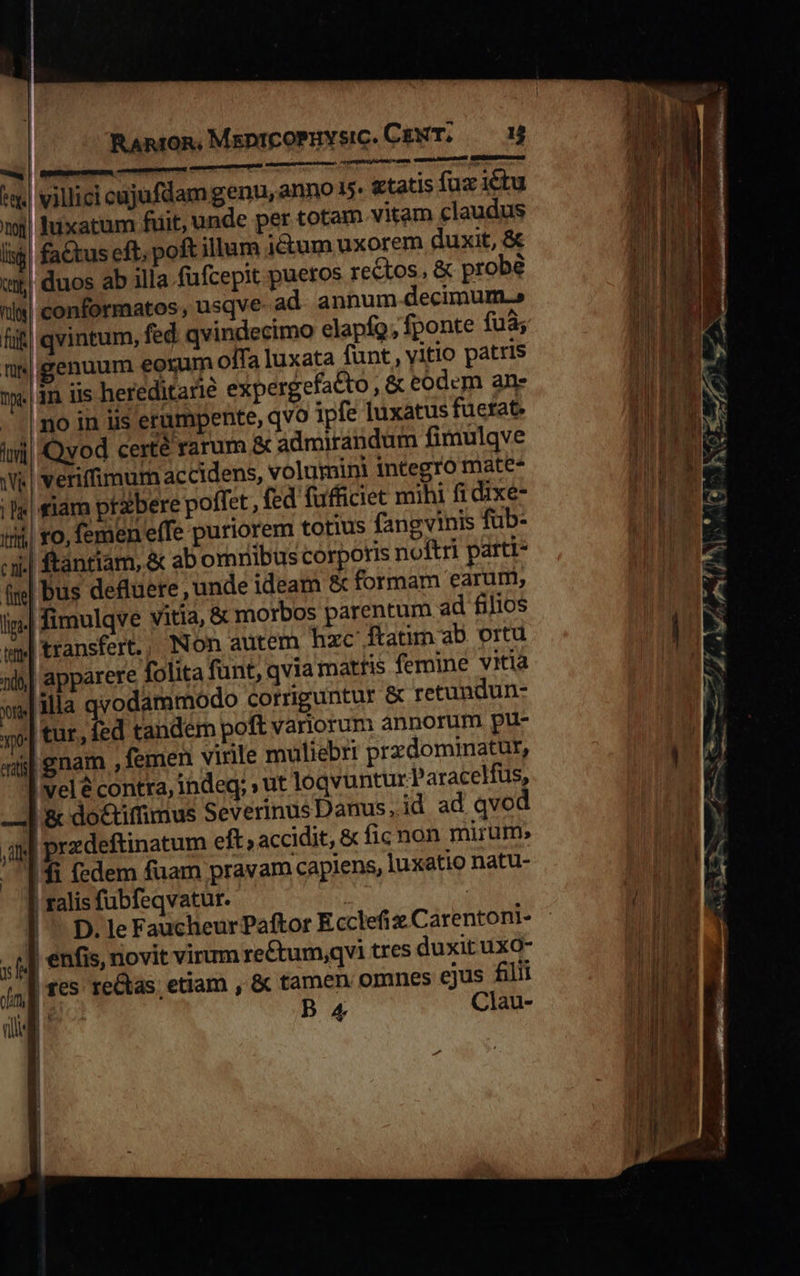 RARIOR. MEDICOPHYSIC. CENT. 15
villici cujuſdam genu, anno 15. ætatis ſuæ ictu
luxatum fuit, unde per totam vitam claudus
factus eſt, poſt illum ictum uxorem duxit, &
duos ab illa ſuſcepit pueros rectos, & probè
conformatos, usqve ad annum decimum
qvintum, ſed qvindecimo elapſo, ſponte ſuâ,
genuum eorum oſſa luxata ſunt, vitio patris
in iis hereditariè expergefacto, & eodem an-
no in iis erumpente, qvo ipſe luxatus fuerat.
Qvod certè rarum & admirandum ſimulqve
veriſſimum accidens, volumini integro mate-
riam præbere poſſet, ſed ſufficiet mihi ſi dixe-
ro, ſemen eſſe puriorem totius ſangvinis ſub-
ſtantiam, & ab omnibus corporis noſtri parti-
bus defluere, unde ideam & formam earum,
ſimulqve vitia, & morbos parentum ad filios
transfert. Non autem hæc ſtatim ab ortu
apparere ſolita ſunt, qvia matris ſemine vitia
illa qvodammodo corriguntur & retundun-
tur, ſed tandem poſt variorum annorum pu-
gnam, ſemen virile muliebri prædominatur,
vel è contra, indeq; , ut loqvuntur Paracelſus,
& doctiſſimus Severinus Danus, id ad qvod
prædeſtinatum eſt, accidit, & ſic non mirum,
ſi ſedem ſuam pravam capiens, luxatio natu-
ralis ſubſeqvatur.
D. le Faucheur Paſtor Eccleſiæ Carentoni-
enſis, novit virum rectum, qvi tres duxit uxo-
res rectas etiam, & tamen omnes ejus filii
B 4 Clau-